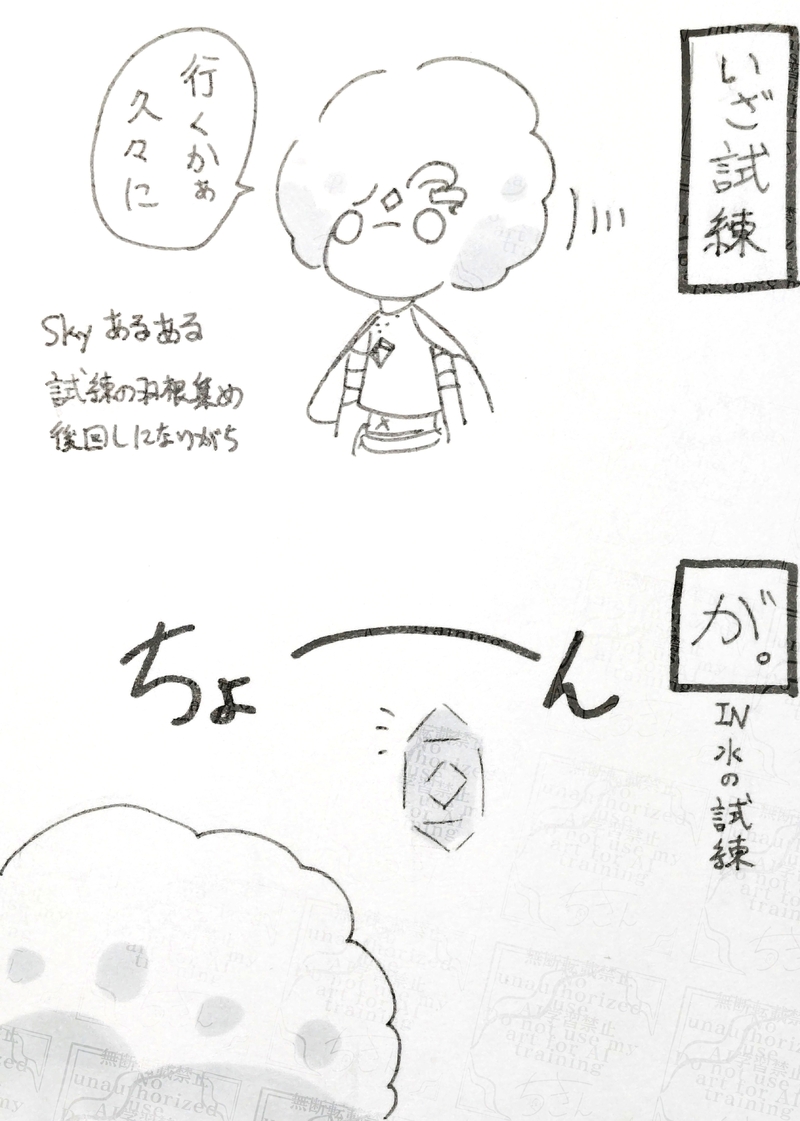 いざ試練
行くかぁ
久々に
Sky あるある
試練の羽根集め
後回しになりがち
が。
IN水の試練
ちょーん
無断転載禁止
No
unauthorized
use
AI学習禁止
Do not use my
art for AI
training